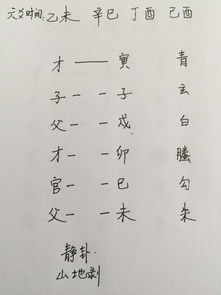 六爻时间:乙未 辛巳 丁酉 己酉
才 —— 寅 青
子 — — 子 玄
父 — — 戌 白
才 — — 卯 螣
官 — — 巳 勾
父 — — 未 朱
静卦
山地剥